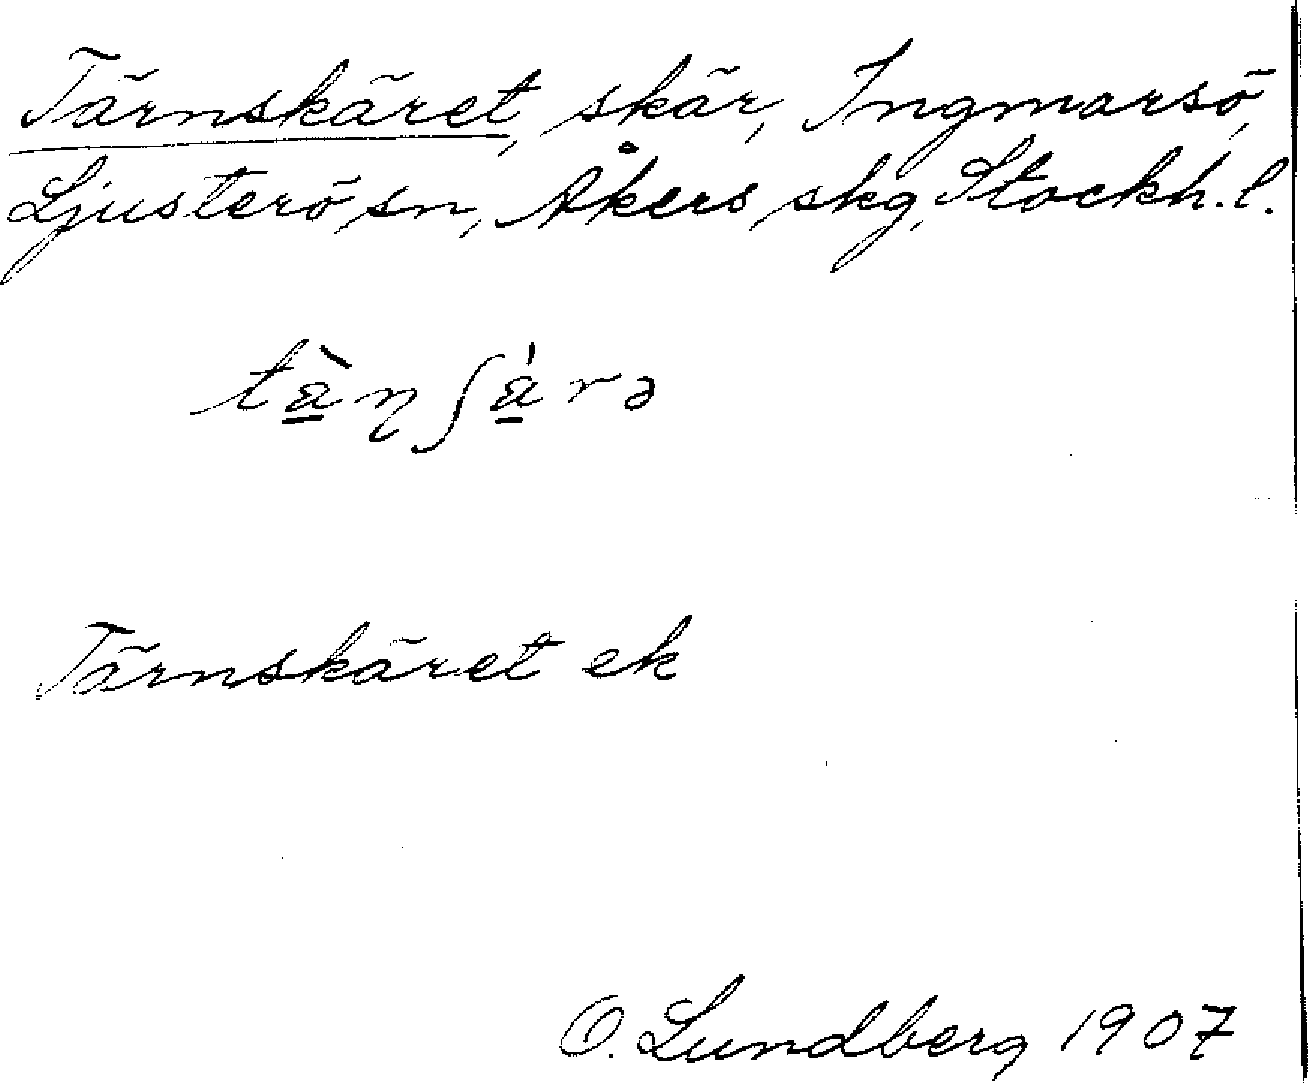 Tärnskäret, skär, Ingmarsö,
Ljusterö sn, Åkers skg, Stockh. l.
tæ̠̀ɳʃǽ̠rə
Tärnskäret ek
O. Lundberg 1907